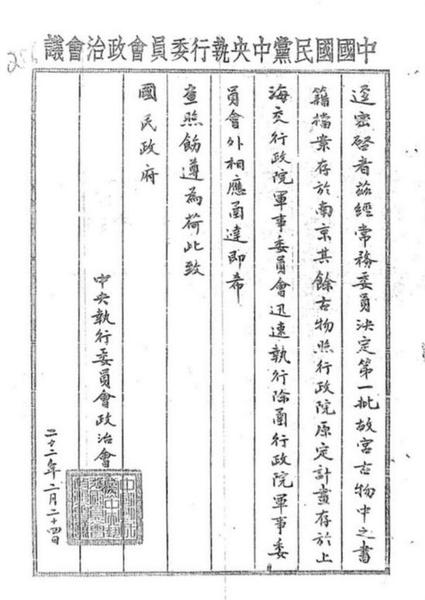 中國國民黨中央執行委員會政治會議
逕密啓者茲經常務委員決定第一批故宮古物中之書
籍檔案存於南京其餘古物照行政院原定計畫存於上
海交行政院軍事委員會迅速執行除函行政院軍事委
員會外相應函達即希
查照飭遵為荷此致
國民政府
中央執行委員會政治會
二十二年二月二十四日